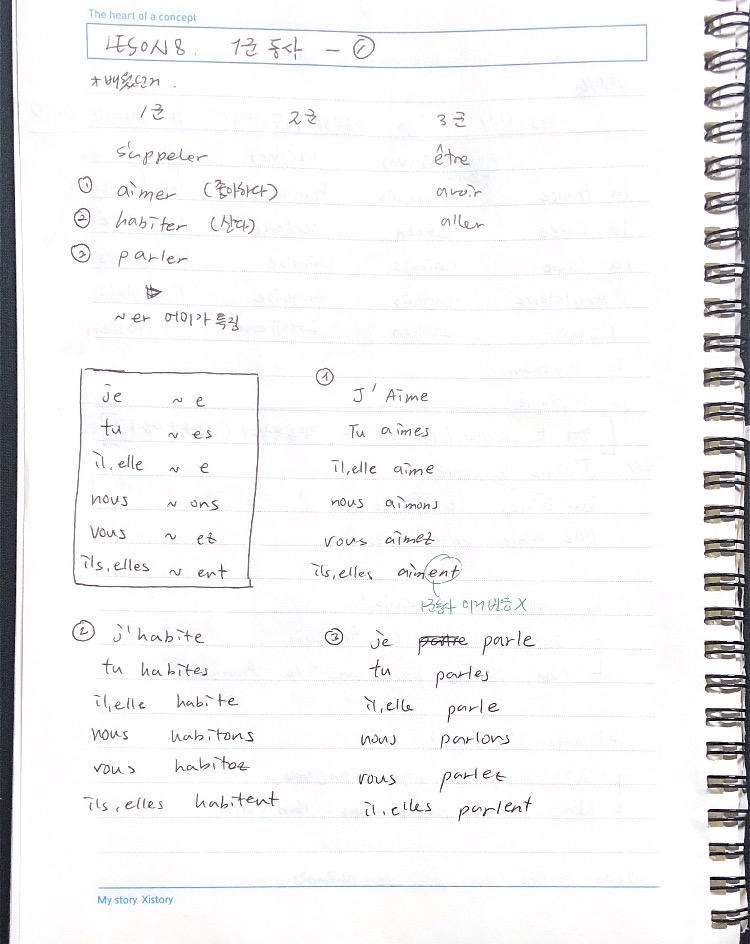 The heart of a concept
LESON 8. 1군 동사 - ①
*배웠던거.
1군 2군 3군
s'appeler être
① aimer (좋아하다) avoir
② habiter (살다) aller
③ parler
~ er 어미가 특징
je ~ e
tu ~ es
il, elle ~ e
nous ~ ons
vous ~ ez
ils, elles ~ ent
①
J'Aime
Tu aimes
il, elle aime
nous aimons
vous aimez
ils, elles aiment
1군동사 이거 발음 X
② j'habite
tu habites
il, elle habite
nous habitons
vous habitez
ils, elles habitent
③ je parle
tu parles
il, elle parle
nous parlons
vous parlez
il, elles parlent
My story Xistory